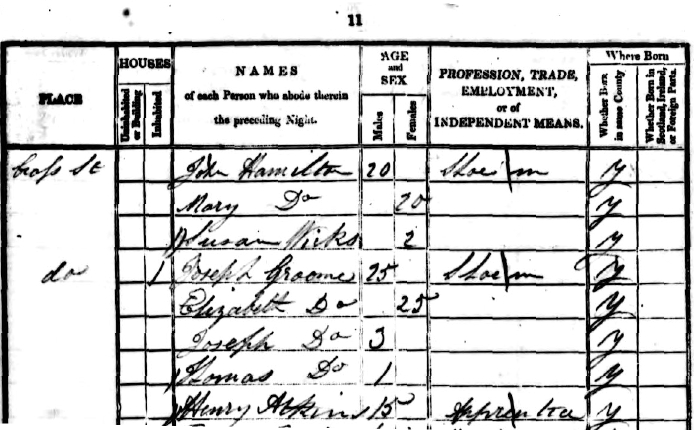 11
PLACE HOUSES NAMES of each Person who abode therein the preceding Night. AGE and SEX PROFESSION, TRADE, EMPLOYMENT, or of INDEPENDENT MEANS. Where Born
Uninhabited or Building Inhabited Males Females Whether Born in same County Whether Born in Scotland, Ireland, or Foreign Parts.
Cross St John Hamilton 20 Shoe m y
Mary Do 20 y
Susan Wicks 2 y
do 1 Joseph Groome 25 Shoe m y
Elizabeth Do 25 y
Joseph Do 3 y
Thomas Do 1 y
Henry Atkins 15 Apprentice y